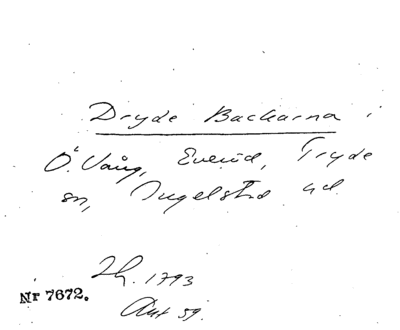 Dryde Backarna i
Ö. Vång, Everöd, Tryde
sn, Ingelstad hd.
Lh. 1793
Nr 7672.
Akt 59.